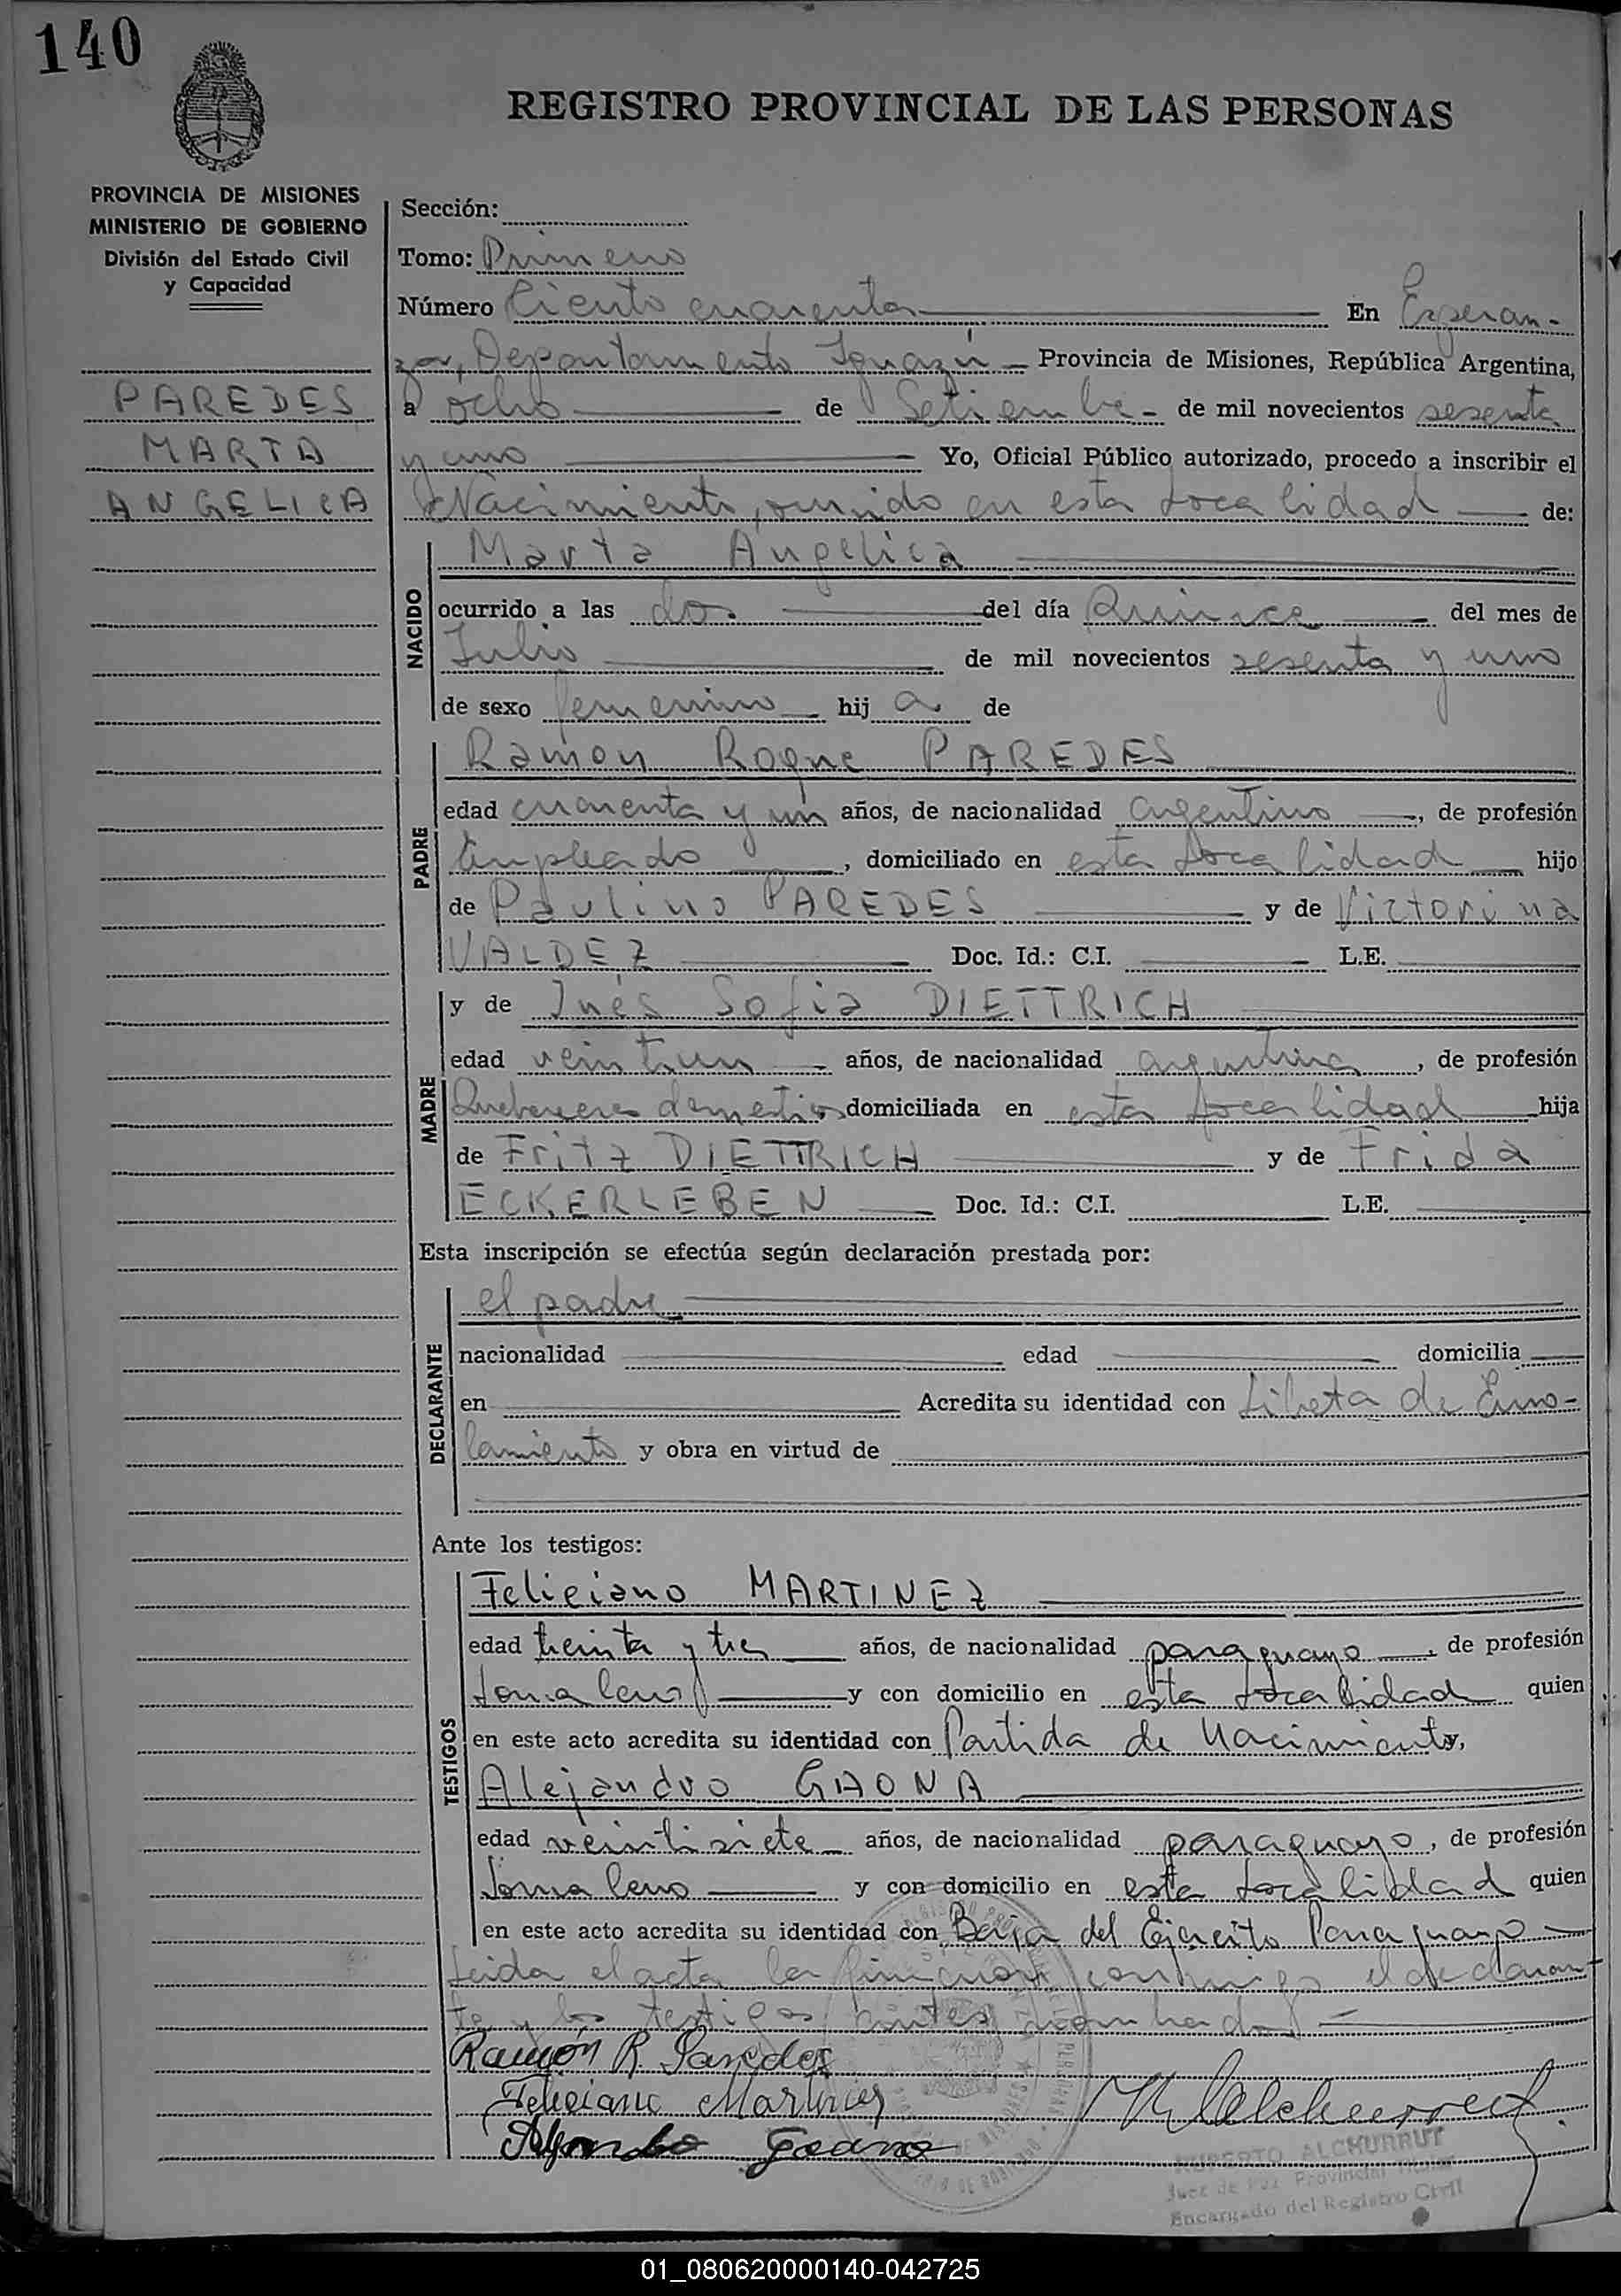 140
REGISTRO PROVINCIAL DE LAS PERSONAS
PROVINCIA DE MISIONES
MINISTERIO DE GOBIERNO
División del Estado Civil
y Capacidad
PAREDES
MARTA
ANGELICA
Sección:
Tomo: Primero
Número Ciento cuarenta En Esperan-
za, Departamento Iguazú Provincia de Misiones, República Argentina,
a ocho de Setiembre de mil novecientos sesenta
y uno Yo, Oficial Público autorizado, procedo a inscribir el
Nacimiento, en esta localidad de:
NACIDO
Marta Angelica
ocurrido a las dos del día Quince del mes de
Julio de mil novecientos sesenta y uno
de sexo femenino hij a de
PADRE
Ramón Roque PAREDES
edad cuarenta y un años, de nacionalidad argentino, de profesión
Empleado, domiciliado en esta localidad hijo
de Paulino PAREDES y de Victorina
VALDEZ Doc. Id.: C.I. L.E.
MADRE
y de Inés Sofia DIETTRICH
edad veintiun años, de nacionalidad argentina, de profesión
Quehaceres domesticos domiciliada en esta localidad hija
de Fritz DIETTRICH y de Frida
ECKERLEBEN Doc. Id.: C.I. L.E.
Esta inscripción se efectúa según declaración prestada por:
DECLARANTE
el padre
nacionalidad edad domicilia
en Acredita su identidad con Libreta de Enro-
lamiento y obra en virtud de
Ante los testigos:
TESTIGOS
Feliciano MARTINEZ
edad treinta y tres años, de nacionalidad paraguayo, de profesión
Jornalero y con domicilio en esta localidad quien
en este acto acredita su identidad con Partida de Nacimiento,
Alejandro GAONA
edad veintisiete años, de nacionalidad paraguayo, de profesión
Jornalero y con domicilio en esta localidad quien
en este acto acredita su identidad con Baja del Ejercito Paraguayo
Leida el acta la firman conmigo el declaran-
te y los testigos antes nombrados
Ramón R. Paredes
Feliciano Martinez
Gaona
RUPERTO ALCHURRUT
Juez de Paz Provincial Titular
Encargado del Registro Civil
01_080620000140-042725